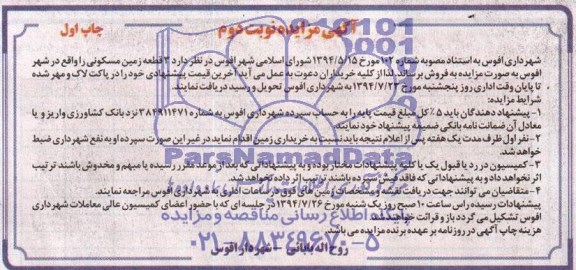 آگهی مزایده نوبت دوم
چاپ اول
شهرداری افوس به استناد مصوبه شماره ۱۰۲ مورخ ۱۳۹۴/۵/۱۵ شورای اسلامی شهر افوس در نظر دارد ۳ قطعه زمین مسکونی را واقع در شهر
افوس به صورت مزایده به فروش برساند. لذا از کلیه خریداران دعوت به عمل می آید آخرین قیمت پیشنهادی خود را در پاکت لاک و مهر شده
تا پایان وقت اداری روز پنجشنبه مورخ ۱۳۹۴/۷/۲۳ به شهرداری افوس تحویل و رسید دریافت نمایند.
شرایط مزایده:
۱- پیشنهاد دهندگان باید ۵٪ کل مبلغ قیمت پایه را به حساب سپرده شهرداری افوس به شماره ۳۸۴۹۱۱۴۷۱ نزد بانک کشاورزی واریز و یا
معادل آن ضمانت نامه بانکی ضمیمه پیشنهاد خود نمایند.
۲- نفر اول ظرف مدت یک هفته پس از اعلام نتیجه باید نسبت به خریداری زمین اقدام نماید در غیر این صورت سپرده او به نفع شهرداری ضبط
خواهد شد.
۳- کمیسیون در رد یا قبول یک یا کلیه پیشنهادات مختار بوده و به پیشنهاداتی که بعد از موعد مقرر رسیده یا مبهم و مخدوش باشند ترتیب
اثر نخواهد داد و به پیشنهاداتی که فاقد فیش سپرده باشند ترتیب اثر داده نخواهد شد.
۴- متقاضیان می توانند جهت دریافت نقشه و مشخصات زمین های فوق در ساعات اداری به شهرداری افوس مراجعه نمایند.
پیشنهادات رسیده راس ساعت ۱۰ صبح روز یک شنبه مورخ ۱۳۹۴/۷/۲۶ در جلسه ای که با حضور اعضای کمیسیون عالی معاملات شهرداری
افوس تشکیل می گردد باز و قرائت خواهد شد.
هزینه چاپ آگهی در روزنامه بر عهده برنده مزایده می باشد.
روح اله بابائی - شهردار افوس
ParsNamadData
پایگاه اطلاع رسانی مناقصه و مزایده
۰۲۱-۸۸۳۴۹۶۷۰-۵